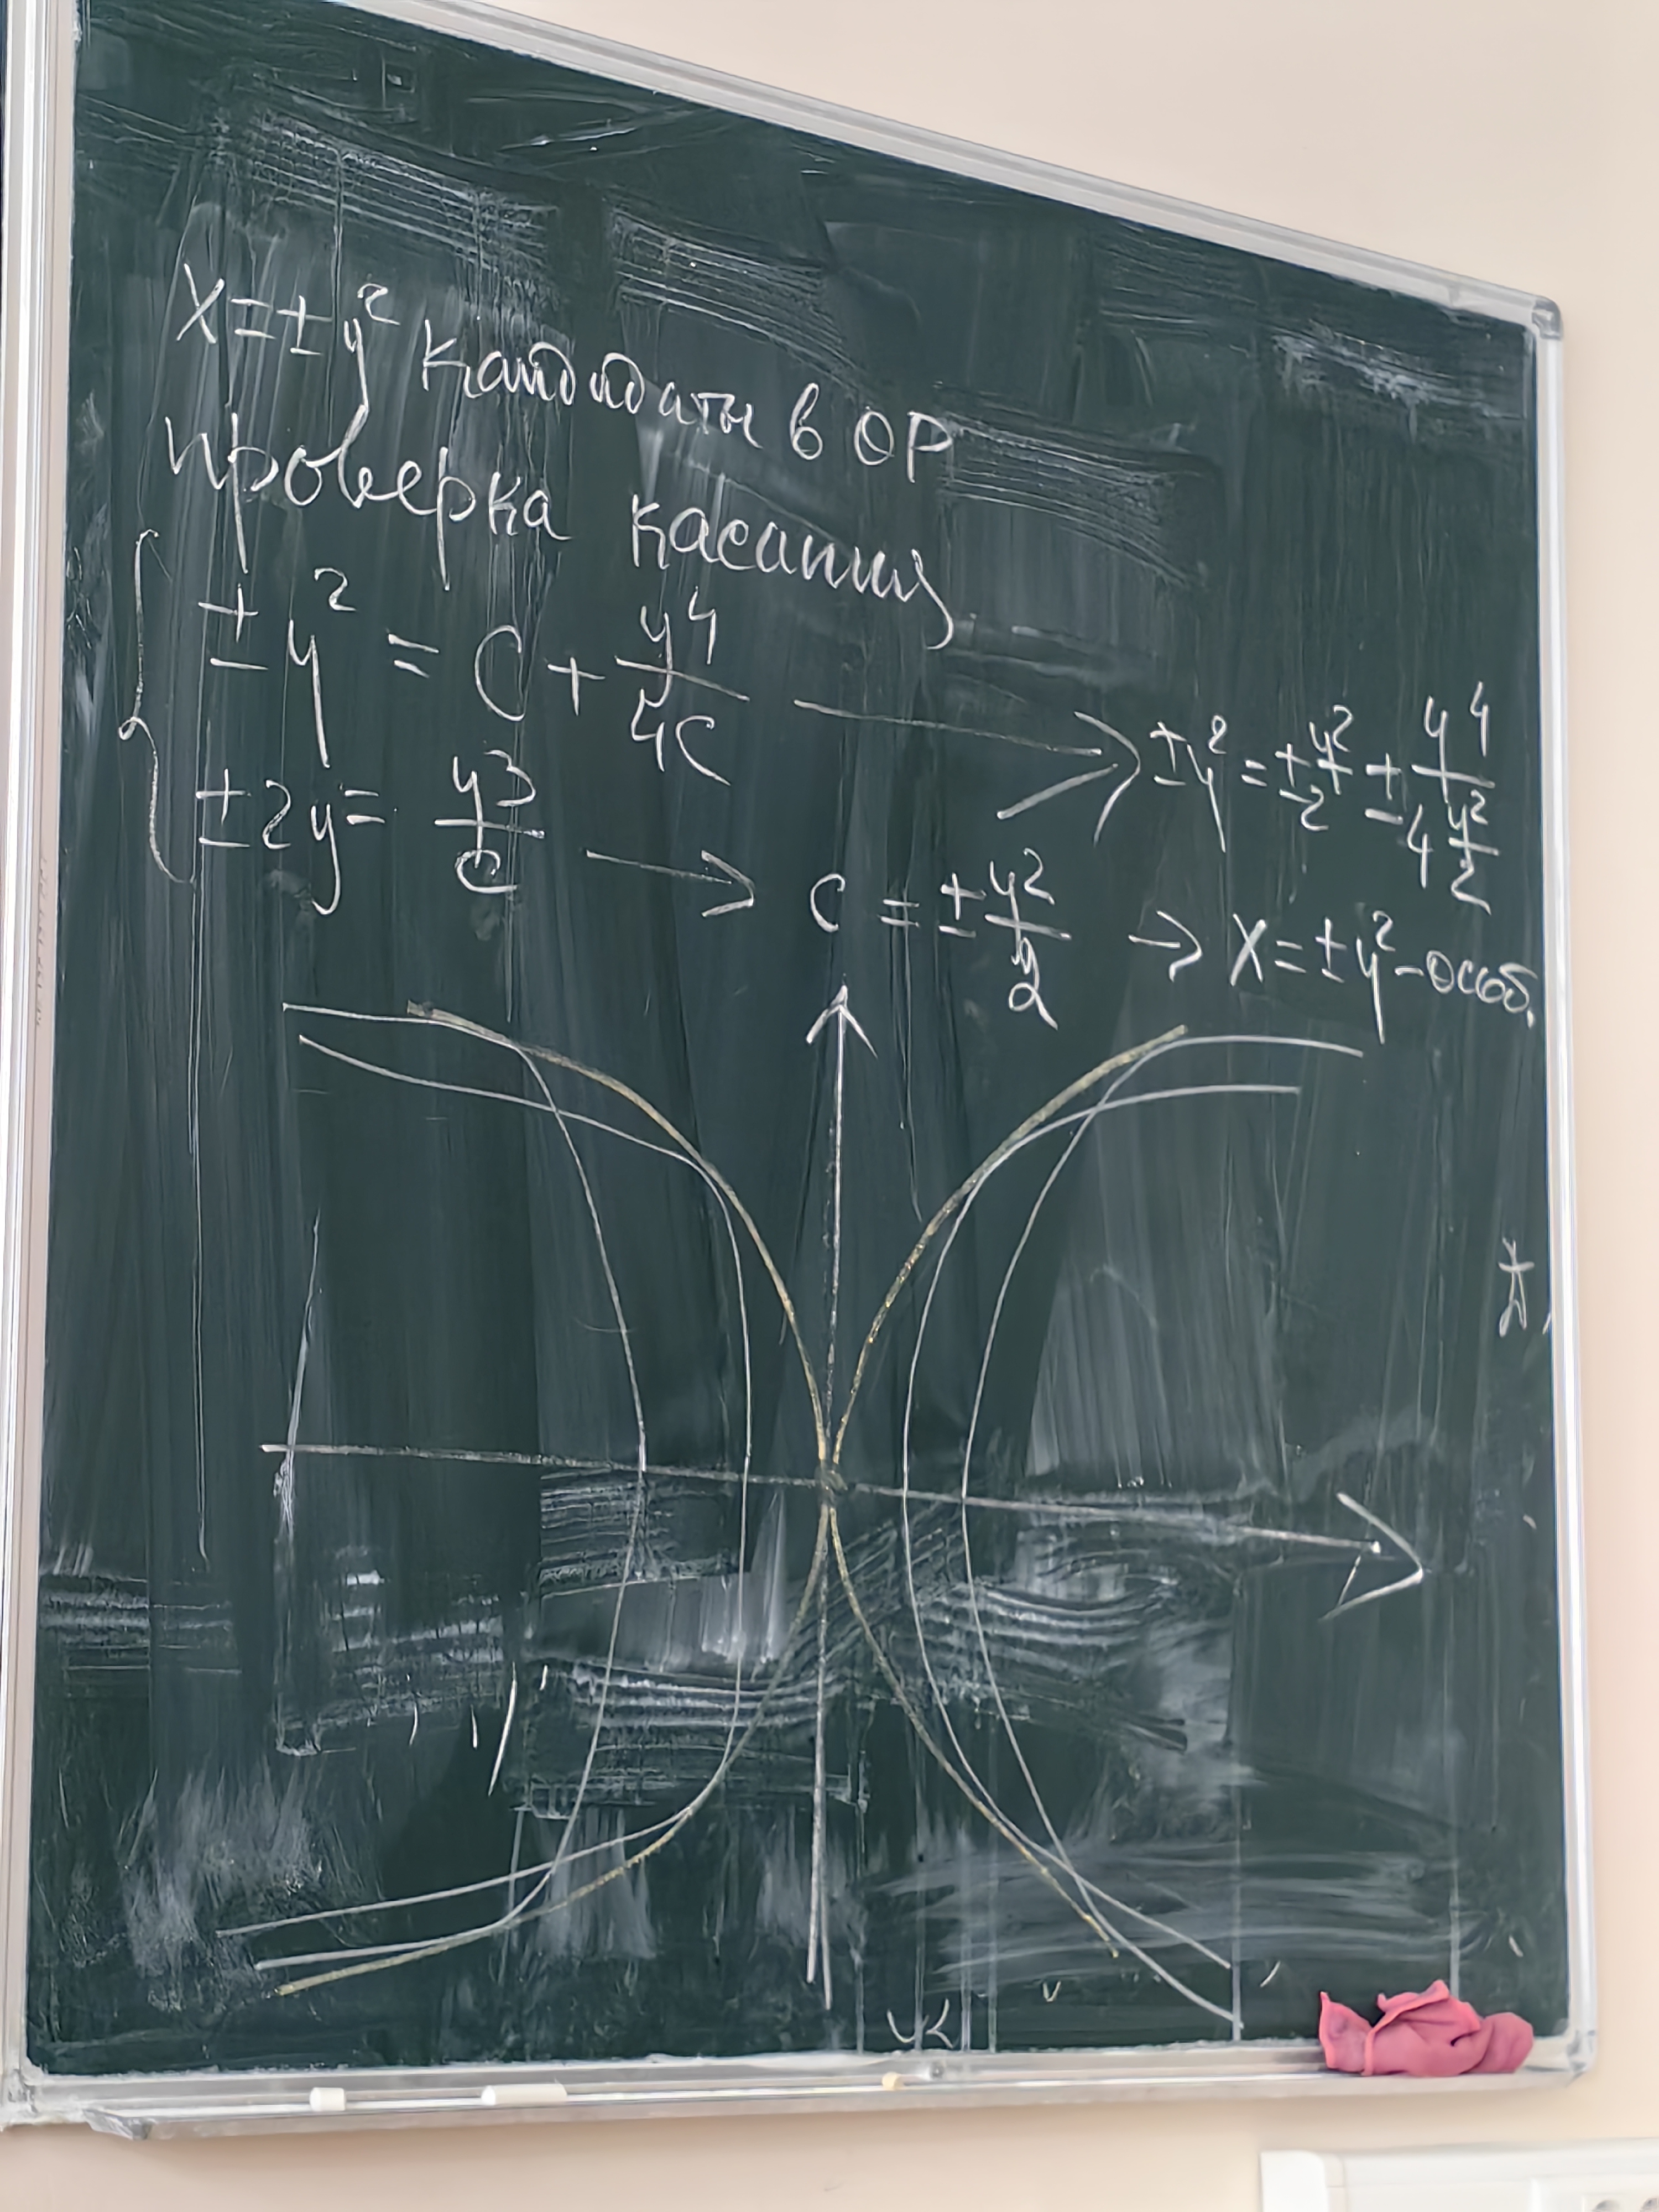 x = ± y² кандидаты в ОР
Проверка касания
± y² = C + y⁴/4C → ± y² = ± y²/2 ± y⁴/(4 y²/2)
± 2y = y³/C → C = ± y²/2 → x = ± y² - особ.